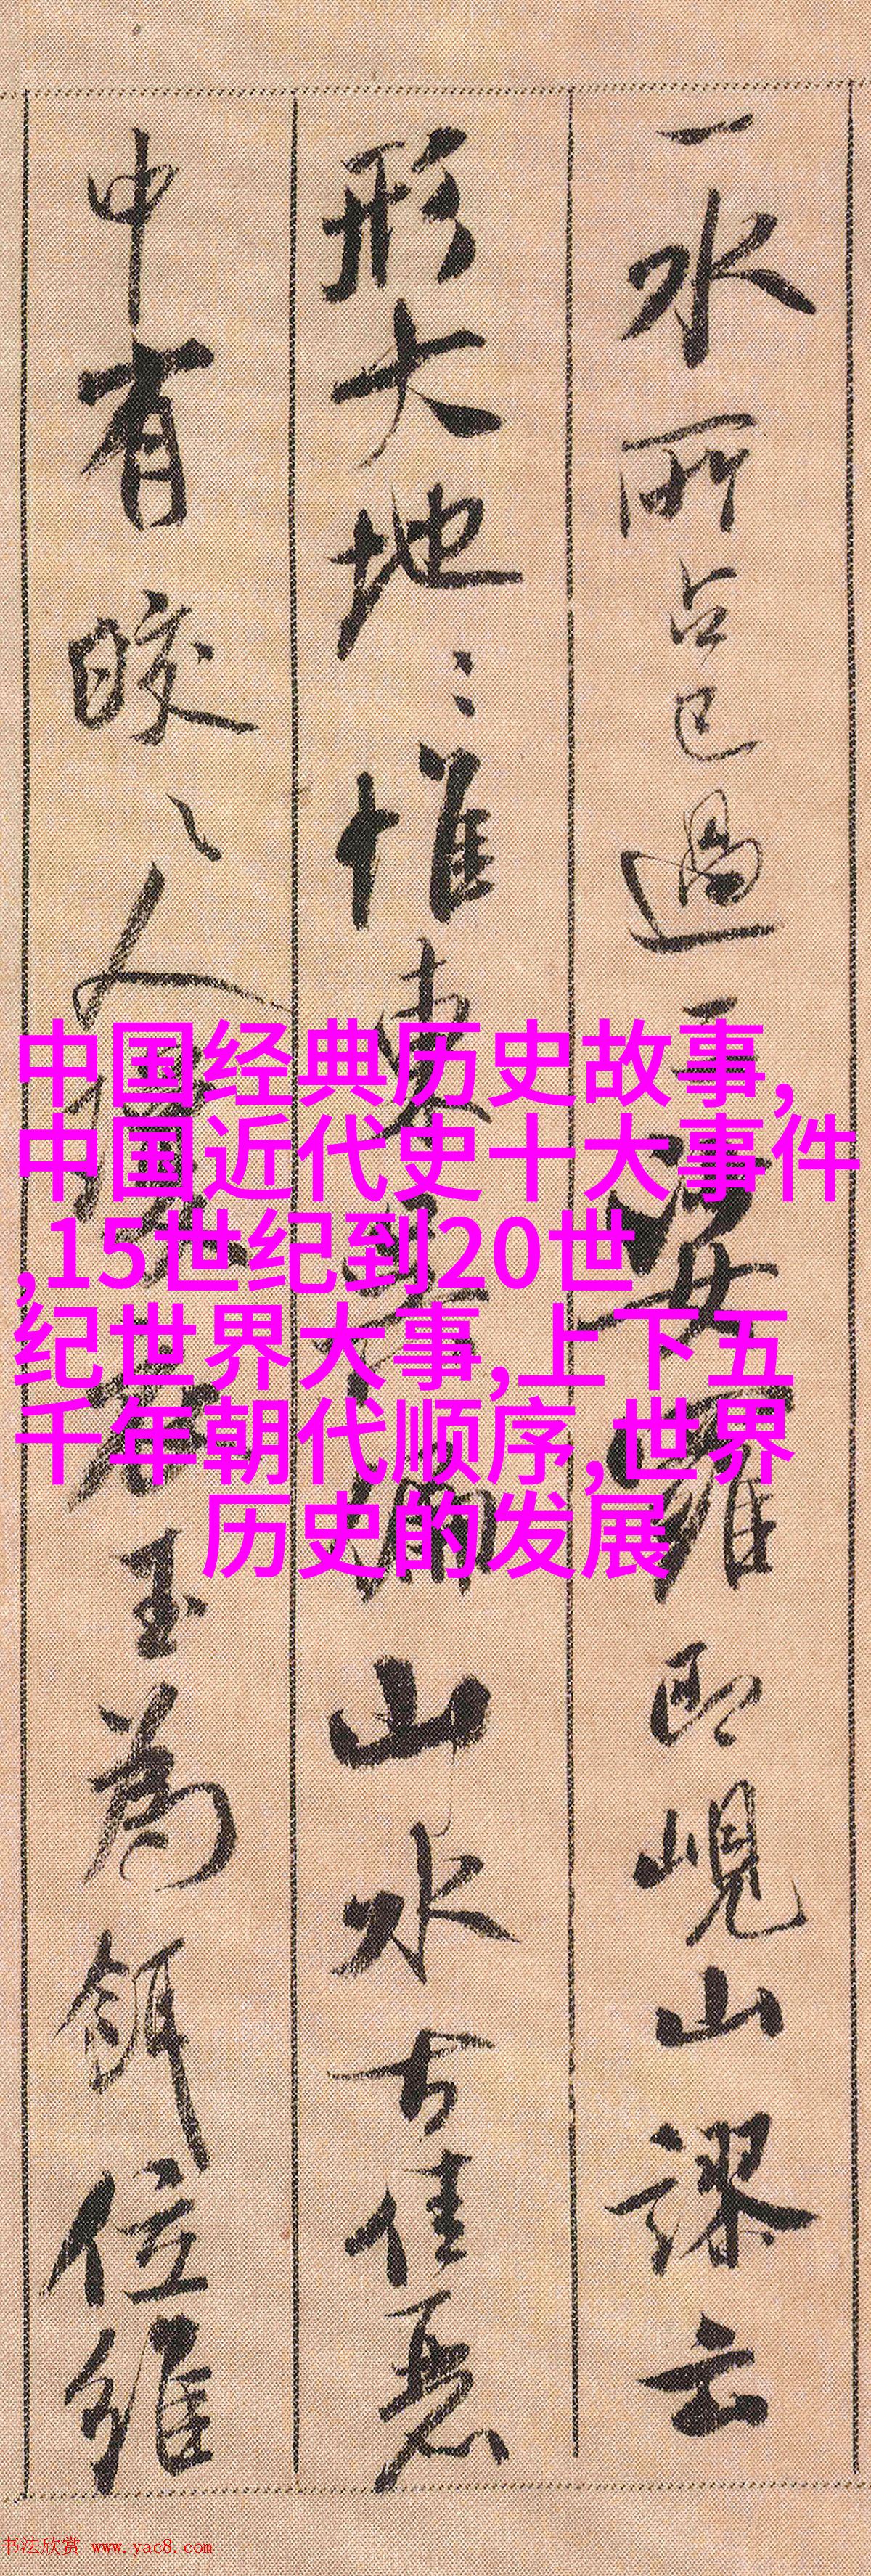 一水所占已過
即峴山謬云
形大地〻惟東
山水古佳惡
中有皎〻人
玉為餌位維
中国经典历史故事,
中国近代史十大事件
,15世纪到20世
纪世界大事,上下五
千年朝代顺序,世界
历史的发展
书法欣赏 www.yac8.com